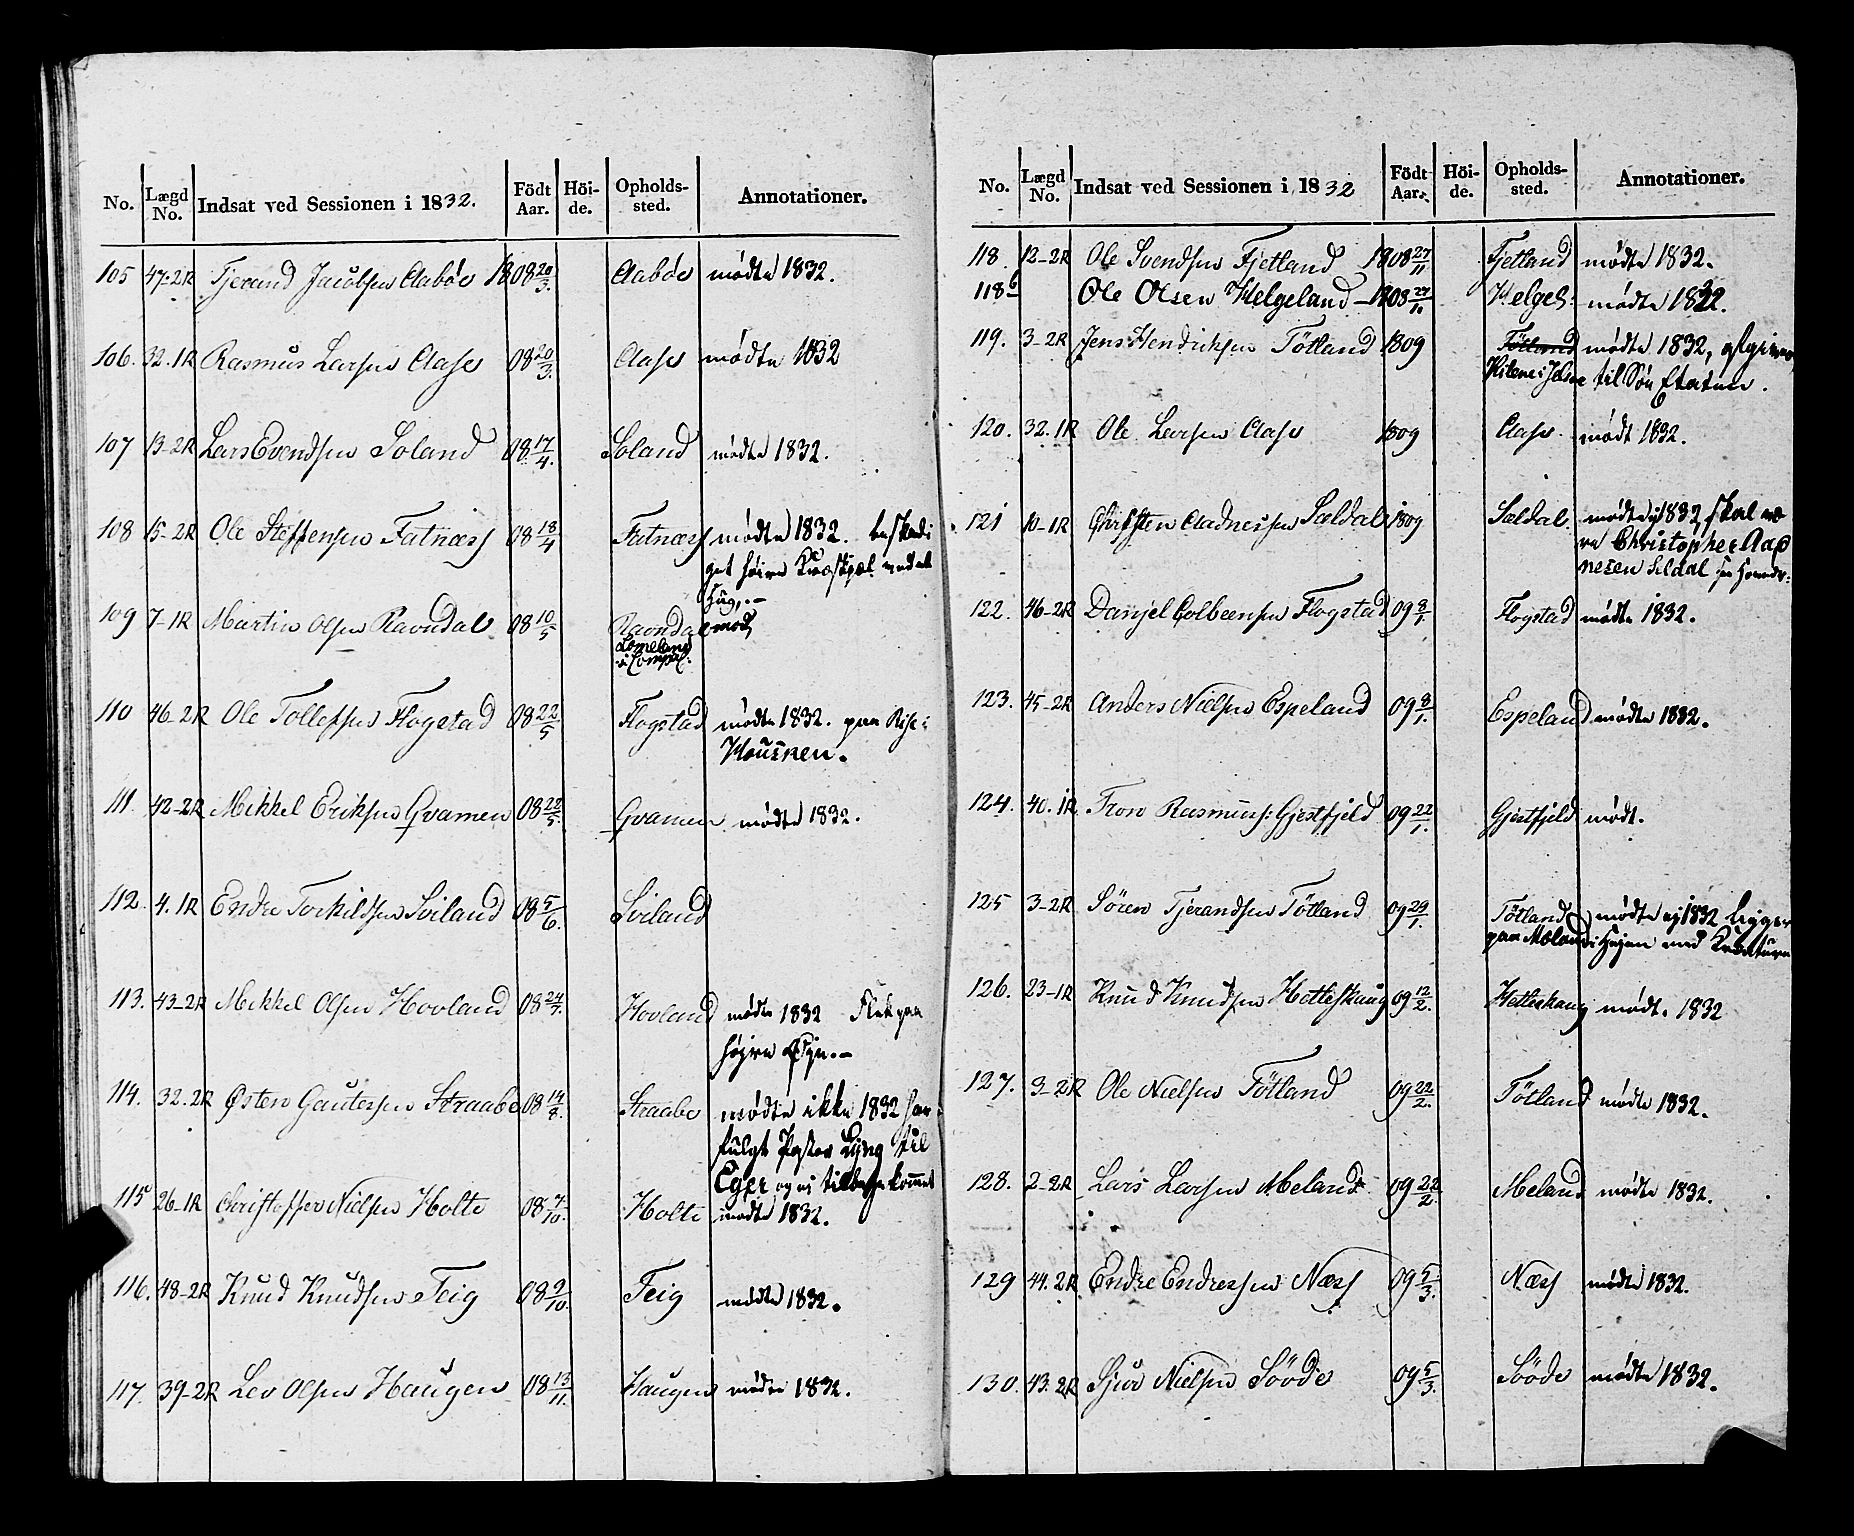 No. Lægd No. Indsat ved Sessionen i 1832. Födt Aar. Höi-de. Opholds-sted. Annotationer.
105 47-2R Tjerand Jacobsen Aabøe 1808 20/3. Aabøe mødte 1832.
106. 32.1R Rasmus Larsen Aase 08 20/3. Aase mødte 1832
107 13-2R Lars Evendsen Soland 08 17/4. Soland mødte 1832.
108 15-2R Ole Steffensen Fatnæss 08 18/4 Fatnæss mødte 1832. beskadi
get høire Knæskjæl ved et
Hug,.-
109 7-1R Martin Olsen Ravndal 08 10/5 Ravndal mødt
Lomeland
110 46-2R Ole Tollefsen Flogstad 08 22/5 Flogstad mødte 1832. paa
111. 42-2R Mekkel Eriksen Qvamen 08 22/5. Qvamen mødte 1832.
112. 4.1R Endre Torkildsen Sviland 08 5/6. Sviland
113. 43-2R Mekkel Olsen Hovland 08 24/7. Hovland mødte 1832 Flek paa
højre Øje.-
114. 32.2R Østen Gautesen Straabe 08 14/8. Straabe mødte ikke 1832 har
fulgt Pastor Lyng til
Eger og ej tilbagekommet
115 26-1R Christoffer Nielsen Holte 08 7/10. Holte mødte 1832.
116. 48-2R Knud Knudsen Teig 08 9/10. Teig mødte 1832.
117. 39-2R Lev Olsen Haugen 08 13/11. Haugen mødte 1832.
No. Lægd No. Indsat ved Sessionen i 1832 Födt Aar. Höi-de. Opholds-sted. Annotationer.
118. 12-2R Ole Svendsen Fjetland 1808 27/11 Fjetland mødte 1832.
118 b Ole Olsen Helgeland 1808 27/1. Helgel: mødte 1832.
119. 3-2R Jens Hendriksen Tötland 1809 Tötland mødte 1832, afgiven
i Jelse til Söe Etaten.
120. 32.1R Ole Larsen Aase 1809 Aase. mødt 1832.
121 10-1R Christen Aadnessen Sældal 1809 Sældal. mødte ej 1832, skal væ
re Christopher Aad
nesen Seldal
122. 46-2R Danjel Colbeensen Flogstad 09 8/1. Flogstad mødte 1832.
123. 45-2R Anders Nielsen Espeland 09 8/1. Espeland mødte 1832.
124. 40.1R Tron Rasmuss: Gjestfjeld 09 22/1. Gjestfjeld mødt.
125 3-2R Sören Tjerandsen Tötland 09 29/1. Tötland mødte ej 1832 ligger
paa Mæland i Hejen med Kreaturn
126. 23-1R Knud Knudsen Hetleskaug 09 12/2. Hetleskaug mødt. 1832
127. 3-2R Ole Nielsen Tötland 09 22/2. Tötland mødte 1832.
128. 2-2R Lars Larsen Meland 09 22/2. Meland mødte 1832.
129 44.2R Endre Endressen Næss 09 5/3. Næss mødte 1832.
130. 43.2R Sjur Nielsen Sööde 09 5/3. Sööde mødte 1832.